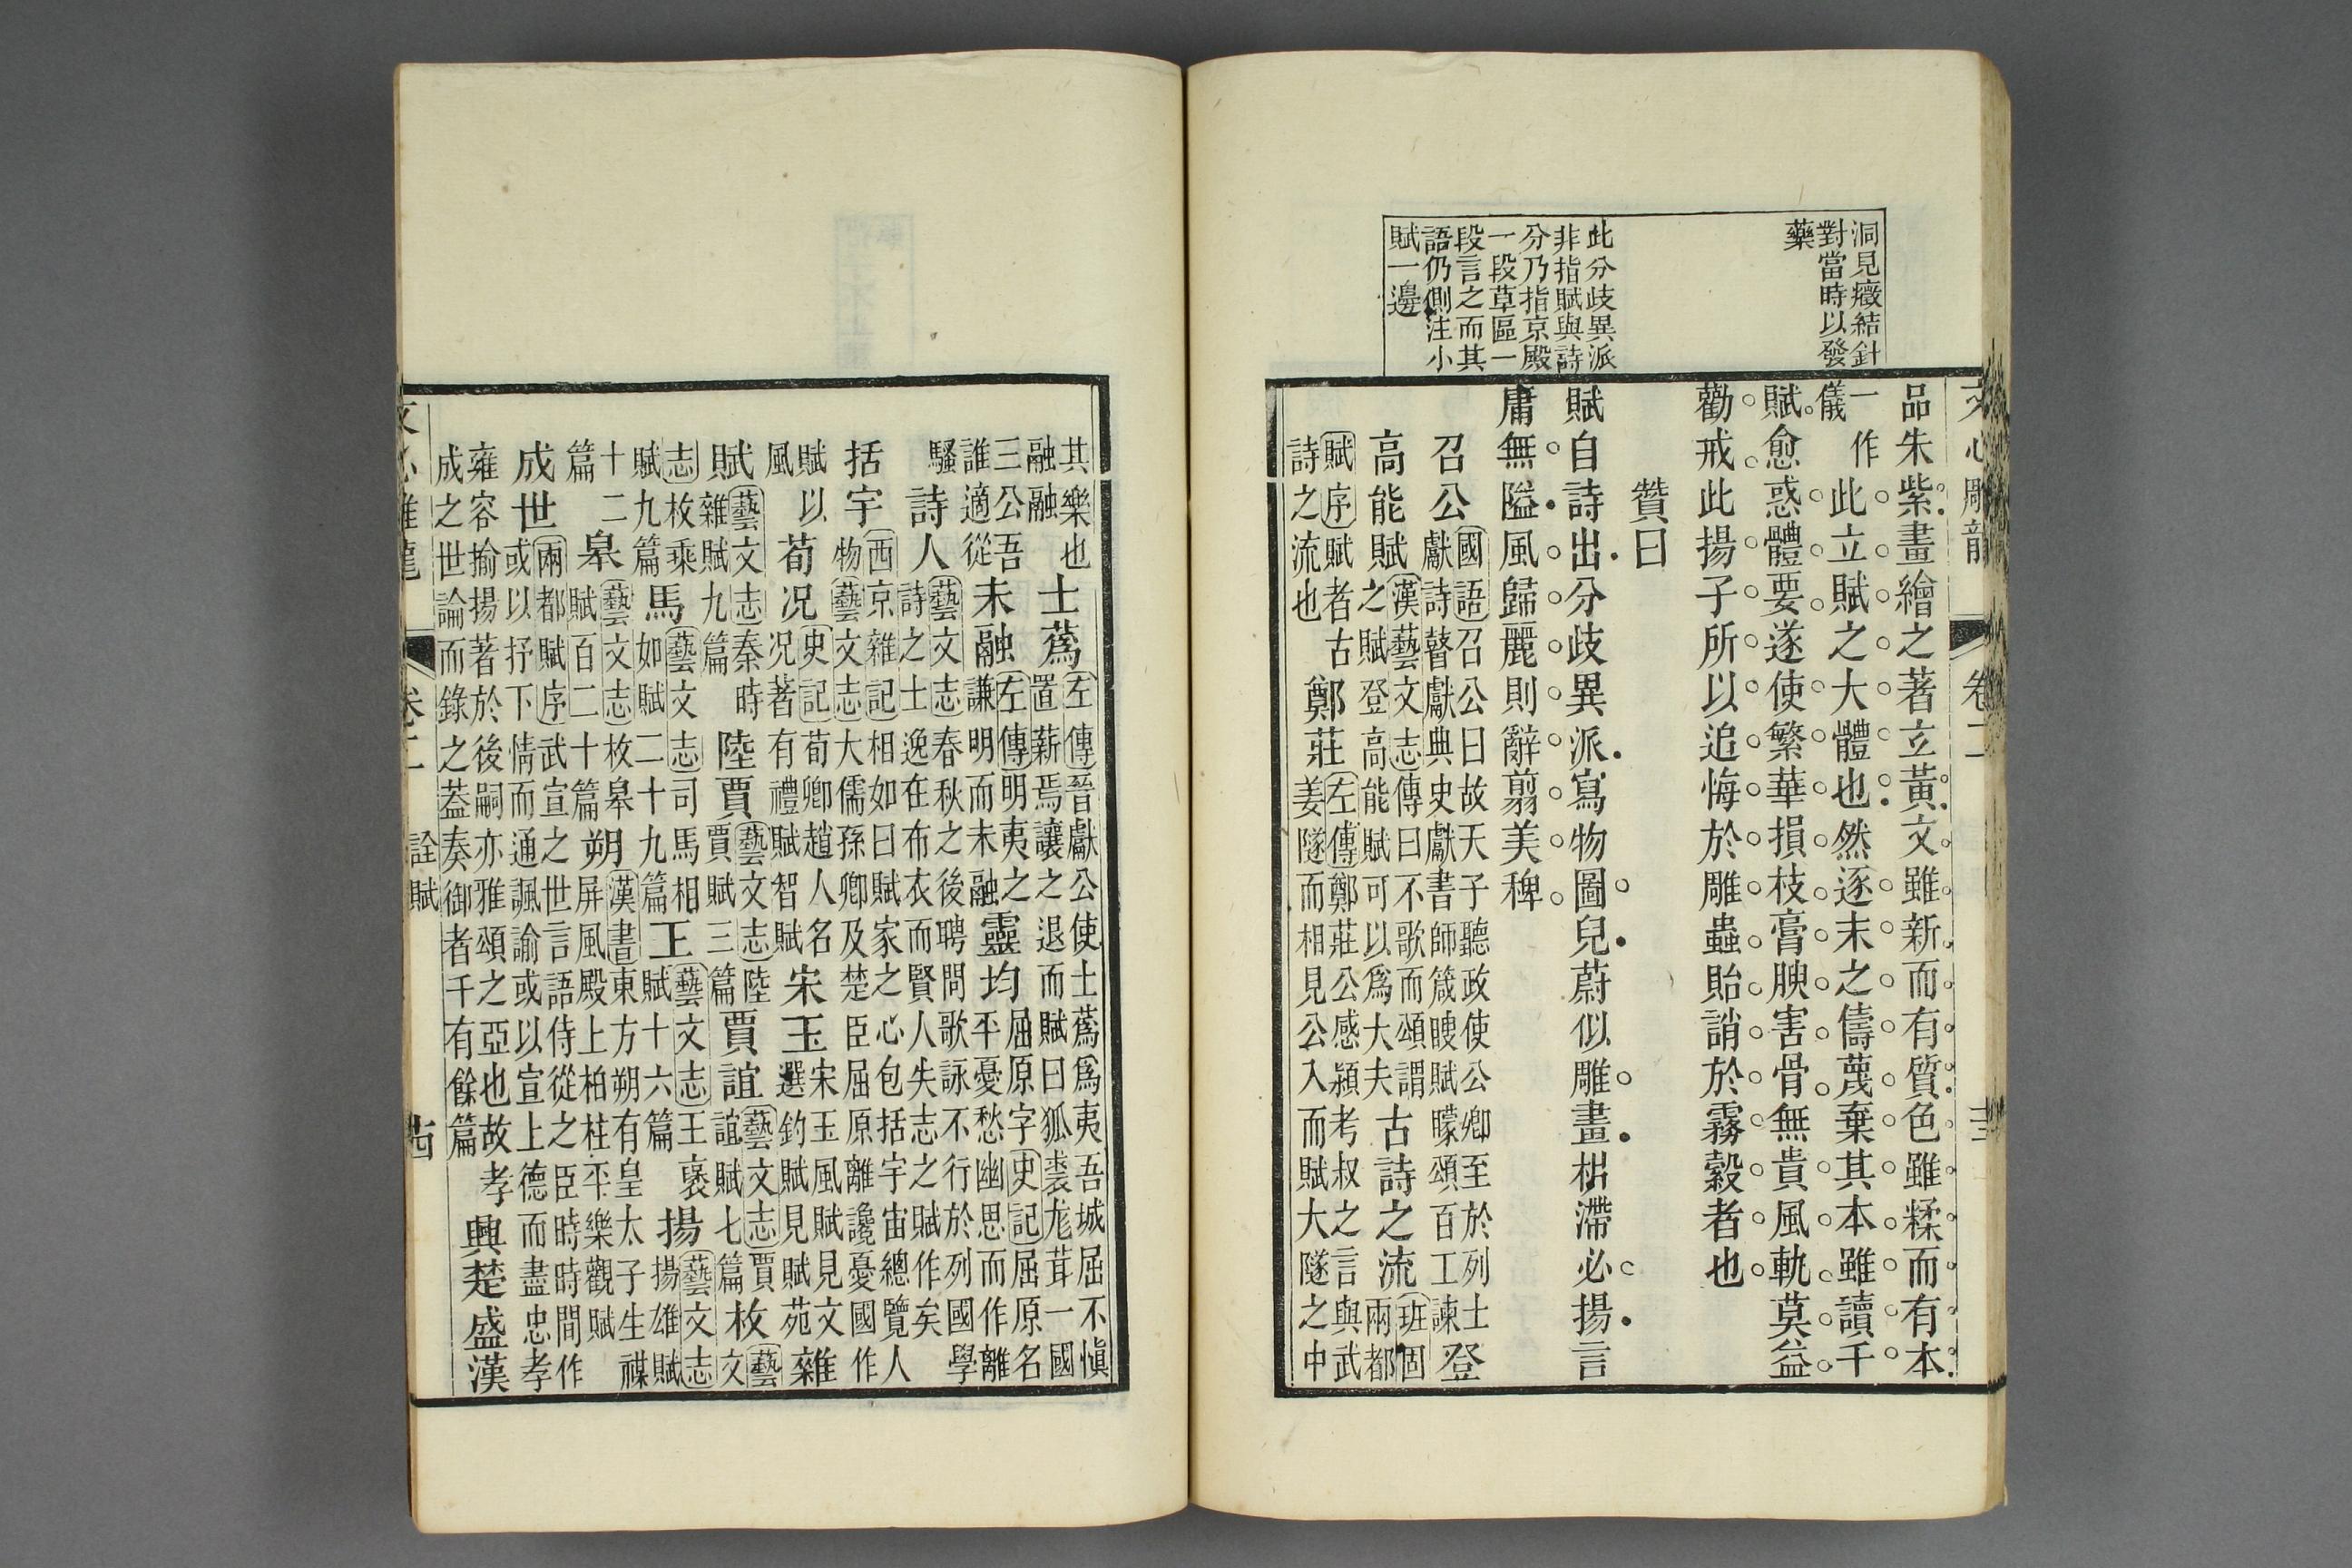 洞見癥結針
對當時以發
藥
此分歧異派
非指賦與詩
分乃指京殿
一段草區一
段言之而其
語仍側注小
賦一邊
文心雕龍 卷二 十三
品朱紫畫繪之著玄黃文雖新而有質色雖糅而有本
一作儀此立賦之大體也然逐末之儔蔑棄其本雖讀千
賦愈惑體要遂使繁華損枝膏腴害骨無貴風軌莫益
勸戒此揚子所以追悔於雕蟲貽誚於霧縠者也
贊曰
賦自詩出分歧異派寫物圖皃蔚似雕畫枯滯必揚言
庸無隘風歸麗則辭翦美稗
召公國語召公曰故天子聽政使公卿至於列士獻詩瞽獻典史獻書師箴瞍賦矇頌百工諫登
高能賦漢藝文志傳曰不歌而頌謂之賦登高能賦可以爲大夫古詩之流班固兩都
賦序賦者古詩之流也鄭莊左傳鄭莊公感潁考叔之言與武姜隧而相見公入而賦大隧之中
其樂也融融士蔿左傳晉獻公使士蔿爲夷吾城屈不愼置薪焉讓之退而賦曰狐裘尨茸一國
三公吾誰適從未融左傳明夷之謙明而未融靈均屈原字史記屈原名平憂愁幽思而作離
騷詩人藝文志春秋之後聘問歌詠不行於列國學詩之士逸在布衣而賢人失志之賦作矣
括宇西京雜記相如曰賦家之心包括宇宙總覽人物藝文志大儒孫卿及楚臣屈原離讒憂國作
賦以風荀况史記荀卿趙人名况著有禮賦智賦宋玉宋玉風賦見文選釣賦見賦苑雜
賦藝文志秦時雜賦九篇陸賈藝文志陸賈賦三篇賈誼藝文志賈誼賦七篇枚藝文
志枚乘賦九篇馬藝文志司馬相如賦二十九篇王藝文志王襃賦十六篇揚藝文志揚雄賦
十二篇皋藝文志枚皋賦百二十篇朔漢書東方朔有皇太子生禖屏風殿上柏柱平樂觀賦
成世兩都賦序武宣之世言語侍從之臣時時間作或以抒下情而通諷諭或以宣上德而盡忠孝
雍容揄揚著於後嗣亦雅頌之亞也故孝成之世論而錄之葢奏御者千有餘篇興楚盛漢
文心雕龍 卷二 詮賦 十四